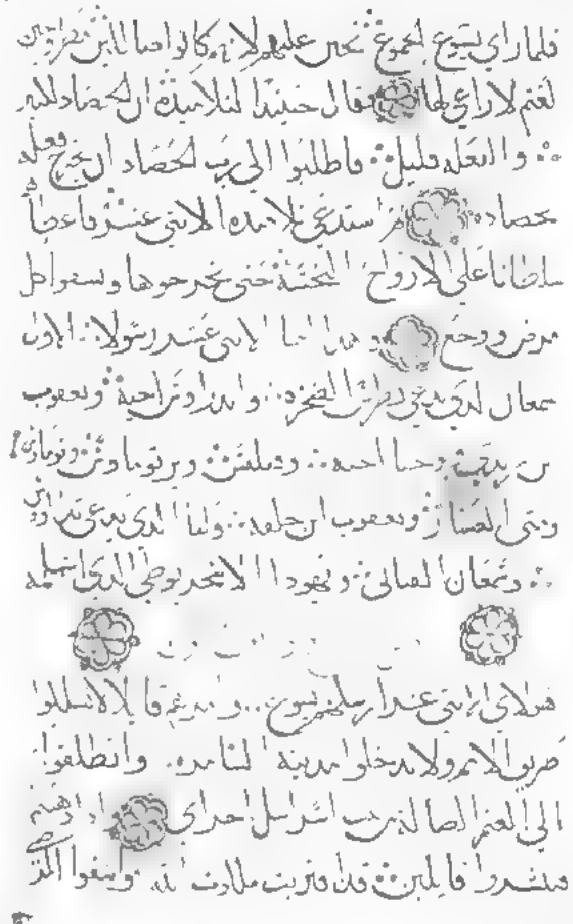 فلما راي يسوع الجموع تحنن عليهم لانهم كانوا ضالين مطروحين
كغنم لا راعي لها فقال حينئذا لتلاميذه ان الحصاد كثير
والفعله قليل فاطلبوا الي رب الحصاد ان يخرج فعله
لحصاده ثم استدعي تلاميذه الاثني عشر فاعطاهم
سلطانا علي الارواح النجسة حتي يخرجوها ويشفوا كل
مرض ووجع وهذا اسما الاثني عشر رسولا الاول
سمعان الذي يدعي بطرس الصخره واندراوس اخيه ويعقوب
بن زبدي ويحنا اخيه وفيلفس وبرتوماوس وتوماس
ومتي العشار ويعقوب ابن حلفه ولبا الذي يدعي تداوس
وشمعان القناني ويهودا الاسخريوطي الذي اسلمه
هولاي الاثني عشر ارسلهم يسوع وامرهم قايلا لا تسلكوا
طريق الامم ولا تدخلوا مدينة السامره وانطلقوا
الي الغنم الضالة من بيت اسرائيل احراي واذا ذهبتم
فبشروا قايلين قد قربت ملكوت الله واشفوا المرضي